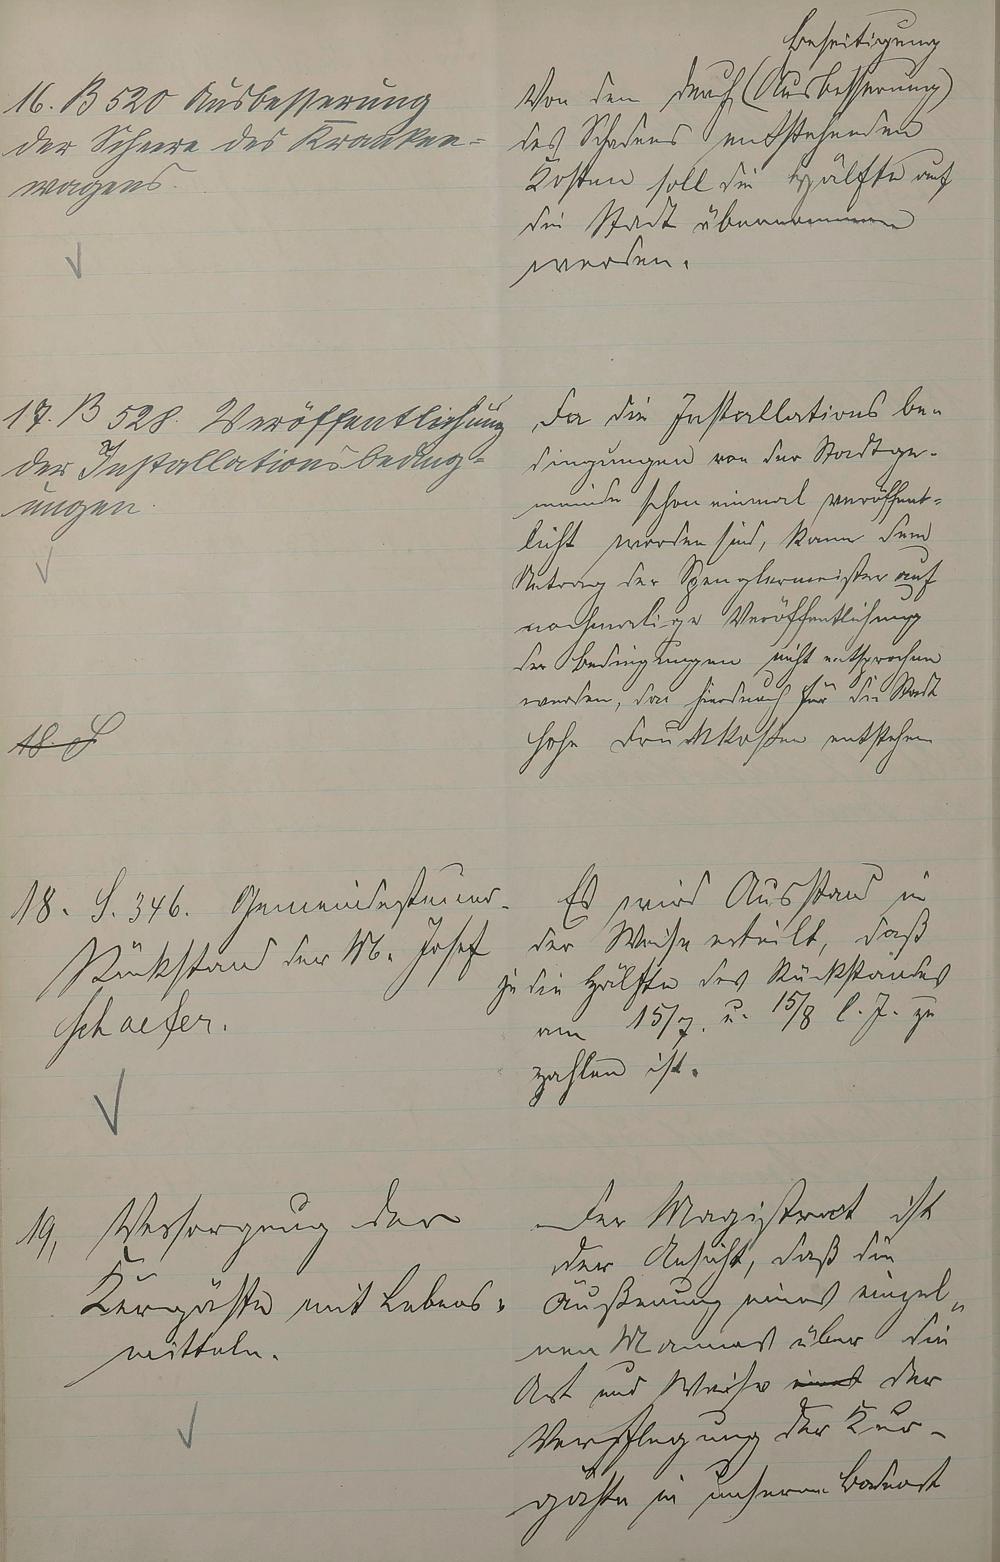 16. B 520 Ausbesserung
der Scheere des Kranken-
wagens.
Beseitigung
Von den durch (Ausbesserung)
des Schadens entstehenden
Kosten soll die Hälfte auf
die Stadt übernommen
werden.
17. B 528. Veröffentlichung
der Installationsbeding-
ungen.
Da die Installations be-
dingungen von der Stadtge-
meinde schon einmal veröffent-
licht worden sind, kann dem
Antrag der Spenglermeister auf
nochmalige Veröffentlichung
der Bedingungen nicht entsprochen
werden, da hierdurch für die Stadt
hohe Druckkosten entstehen
18. S
18. S. 346. Gemeindesteuer-
Rückstand der M. Josef
Schaefer.
Es wird Ausstand in
der Weise erteilt, daß
je die Hälfte des Rückstandes
am 15/7. u. 15/8 l. J. zu
zahlen ist.
19, Versorgung der
Kurgäste mit Lebens-
mitteln.
Der Magistrat ist
der Ansicht, daß die
Äußerung eines einzel-
nen Mannes über die
Art und Weise der
Verpflegung der Kur-
gäste in unserem Badeort